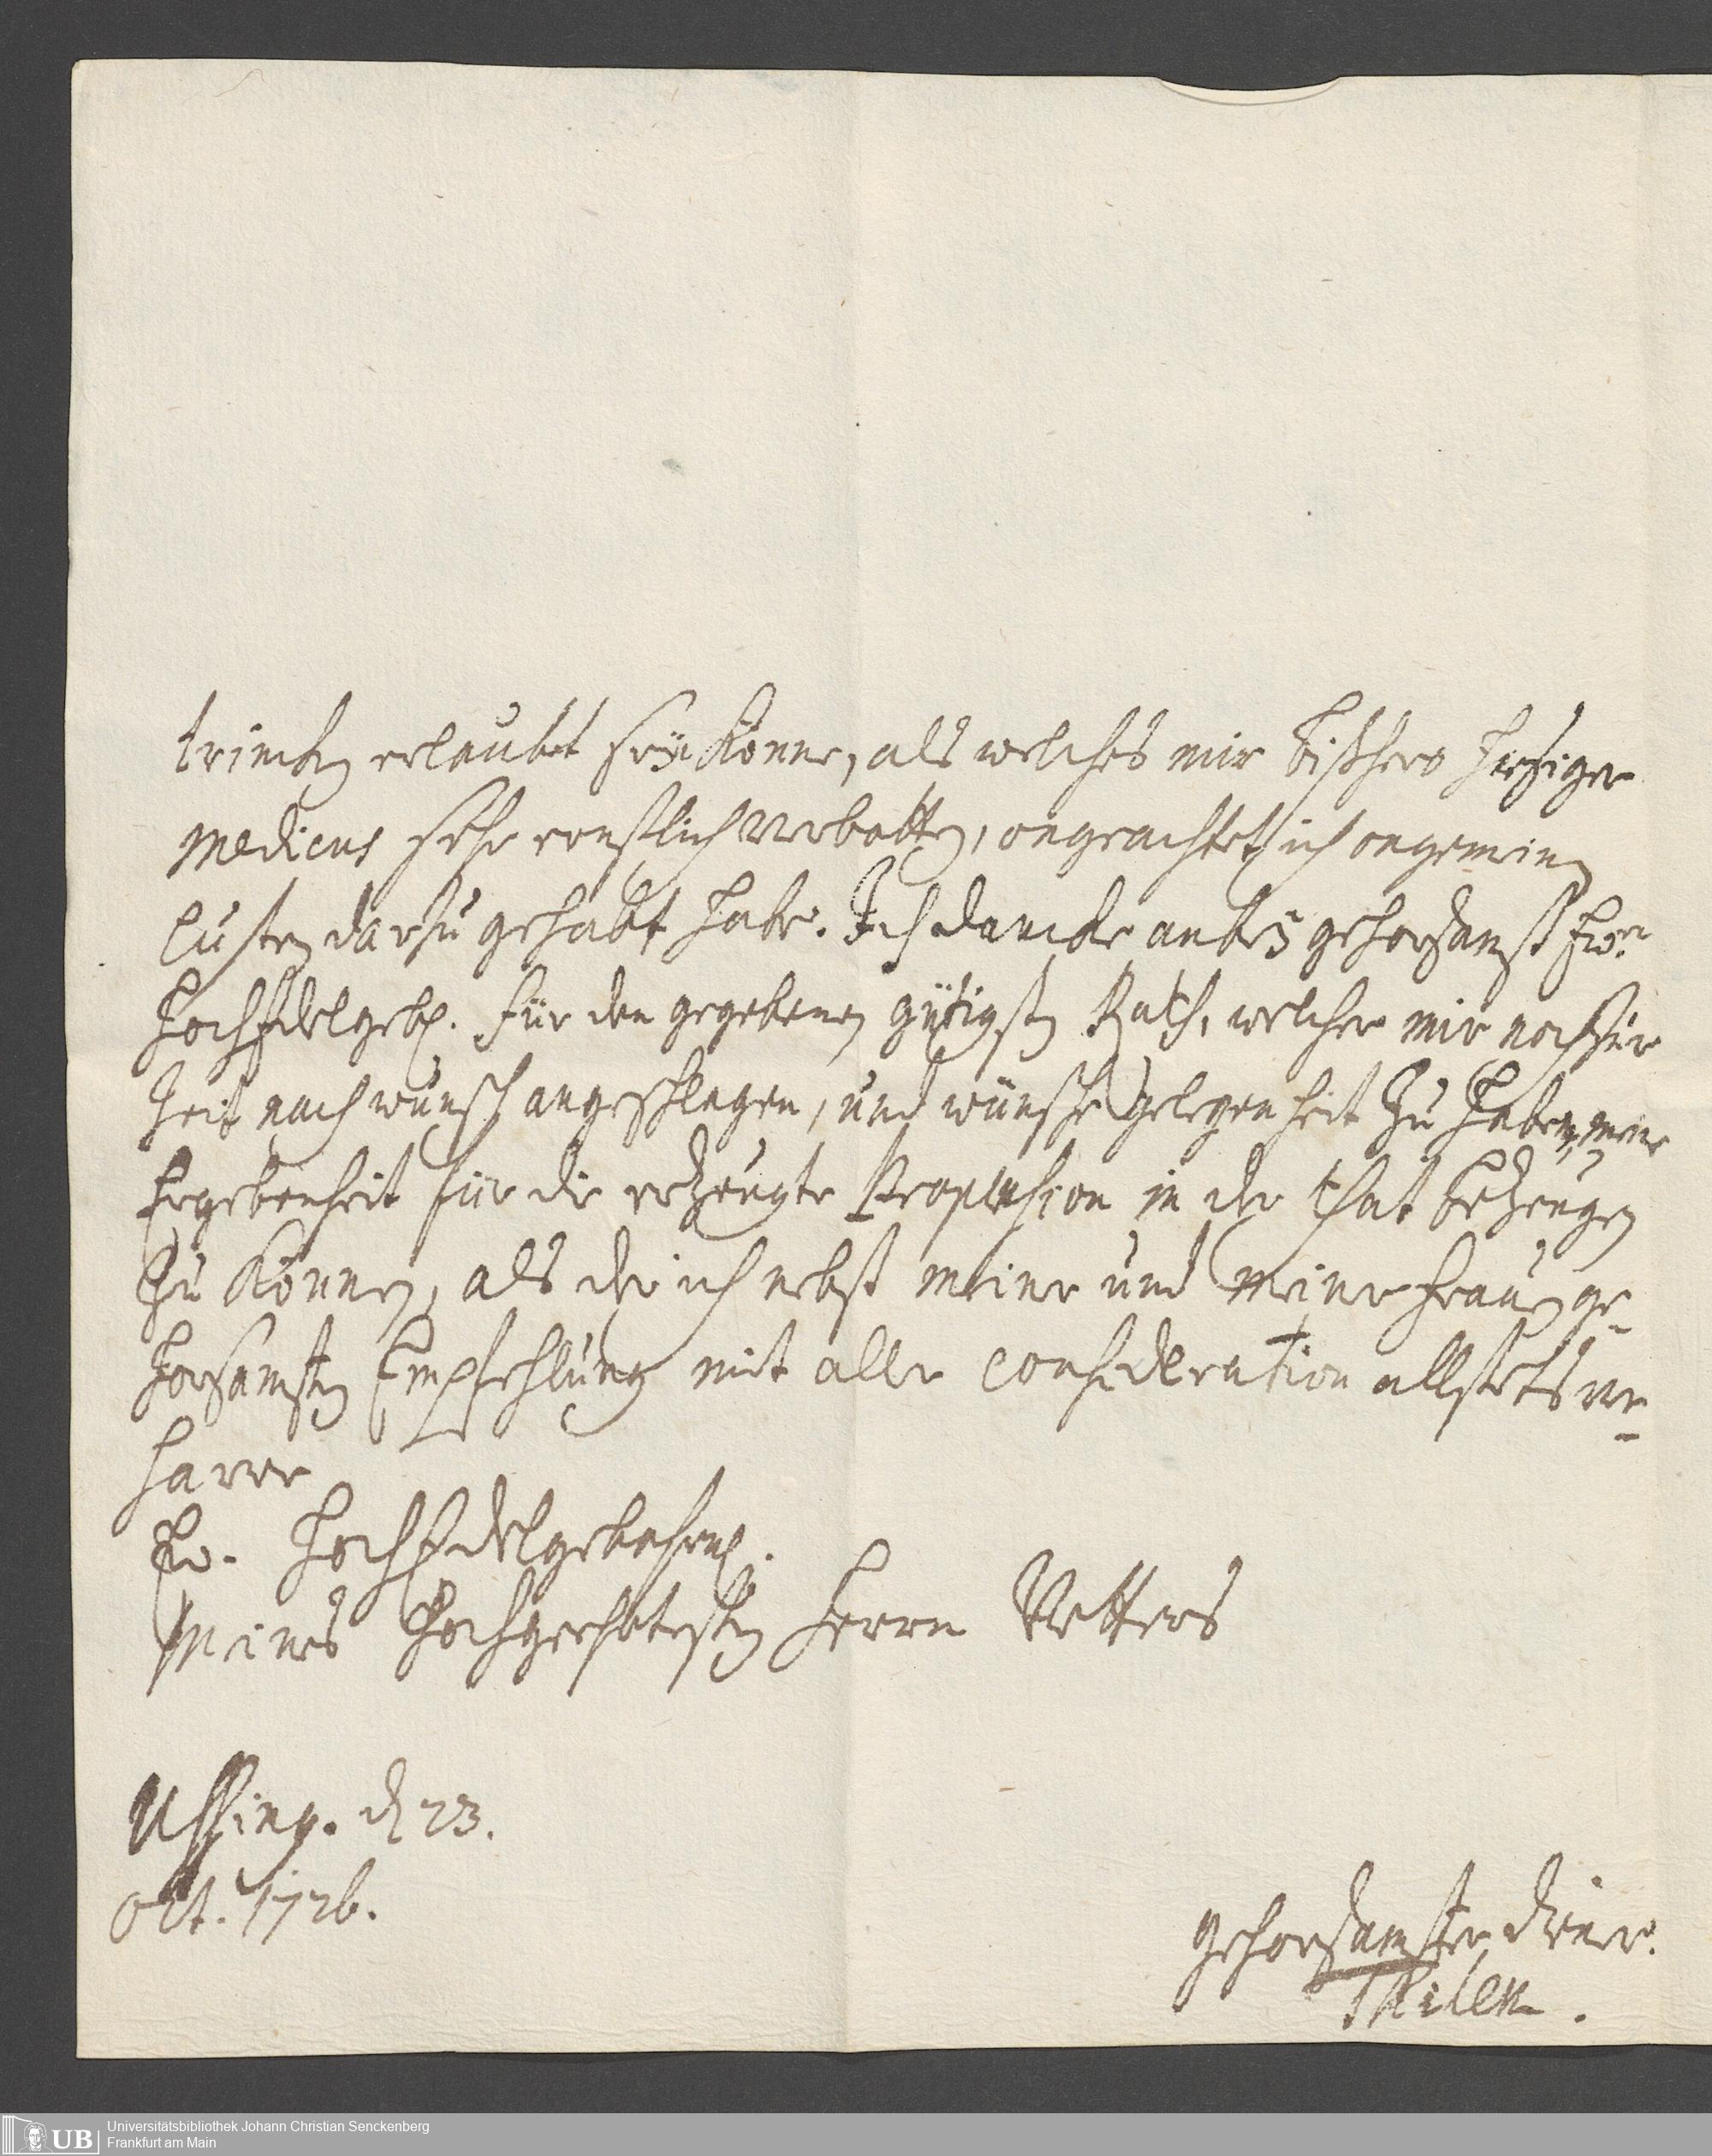 trincken erlaubet seÿn könne, als welches mir bißhero hiesiger
Medicus sehr ernstlich verbotten, ongeachtet ich ongemeinen
lusten darzu gehabt habe. Ich dancke anbeÿ gehorsamst Ewr.
HochEdelgeb. für den gegebenen gütigsten Rath, welcher mir noch zur
Zeit nach wunsch angeschlagen, und wünsche gelegenheit zu haben, meine
Ergebenheit für die erzeugte Propension in der that bezeugen
zu können, als der ich nebst meiner und meiner Frauen ge-
horsamsten Empfehlung mit aller consideration allstets ver-
harre
Ew. HochEdelgebohrn.
Meines Hochgeehrtesten Herrn Vetters
Ussing. d 23.
Oct. 1726.
gehorsamster diener.
Thilen.
UB
Universitätsbibliothek Johann Christian Senckenberg
Frankfurt am Main